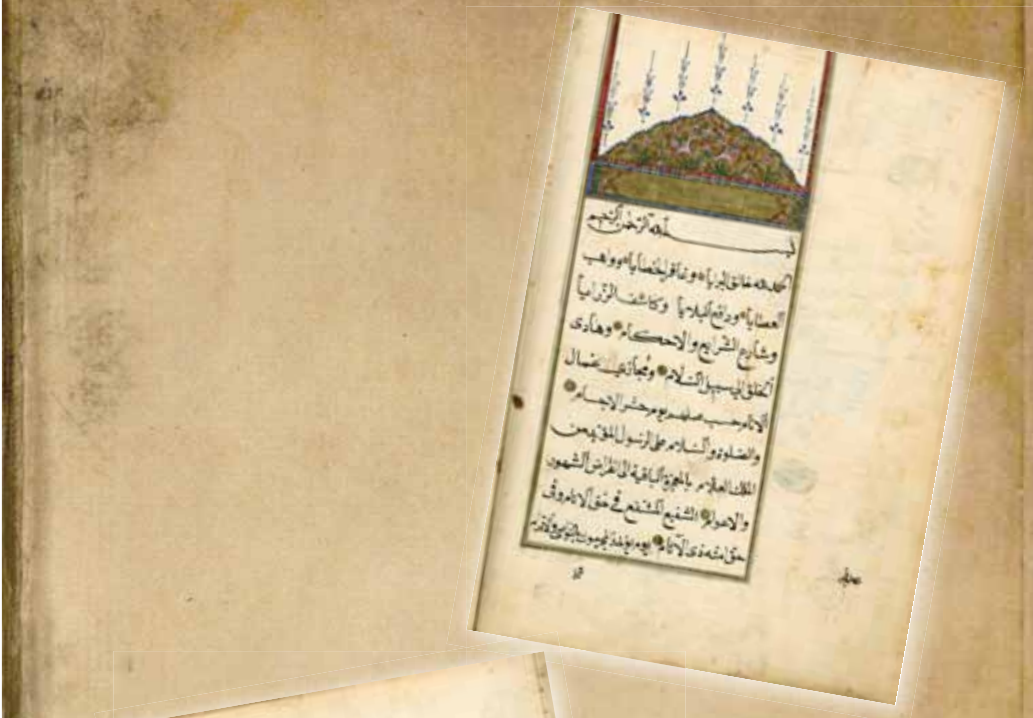 بسم الله الرحمن الرحيم
الحمد لله خالق البرايا وغافر الخطايا وواهب
العطايا ودافع البلايا وكاشف الرزايا
وشارع الشرايع والاحكام وهادى
الخلق الى سبيل السلام ومجازى
الانام حسب يوم حشر
والصلوة والسلام على الرسول المؤيد من
الملك العلام بالمعجزة الباقية الى انقراض الشهور
والاعوام الشفيع المشفع في حق الانام وفى
حق امته ذى الآثام يوم يؤخذ